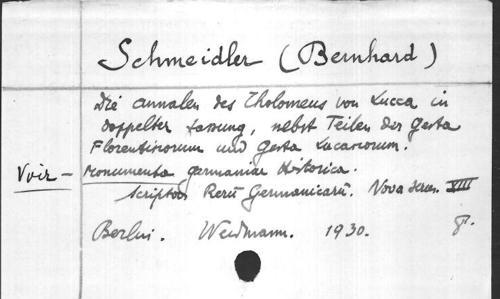 Schmeidler (Bernhard)
Die annalen des Tholomeus von Lucca in
doppelter Fassung, nebst Teilen der Gesta
Florentinorum und Gesta Lucanorum.
Voir - Monumenta germaniae Historica.
Scriptores Rerū Germanicarū. Nova Series. VIII
Berlin. Weidmann. 1930. 8°.